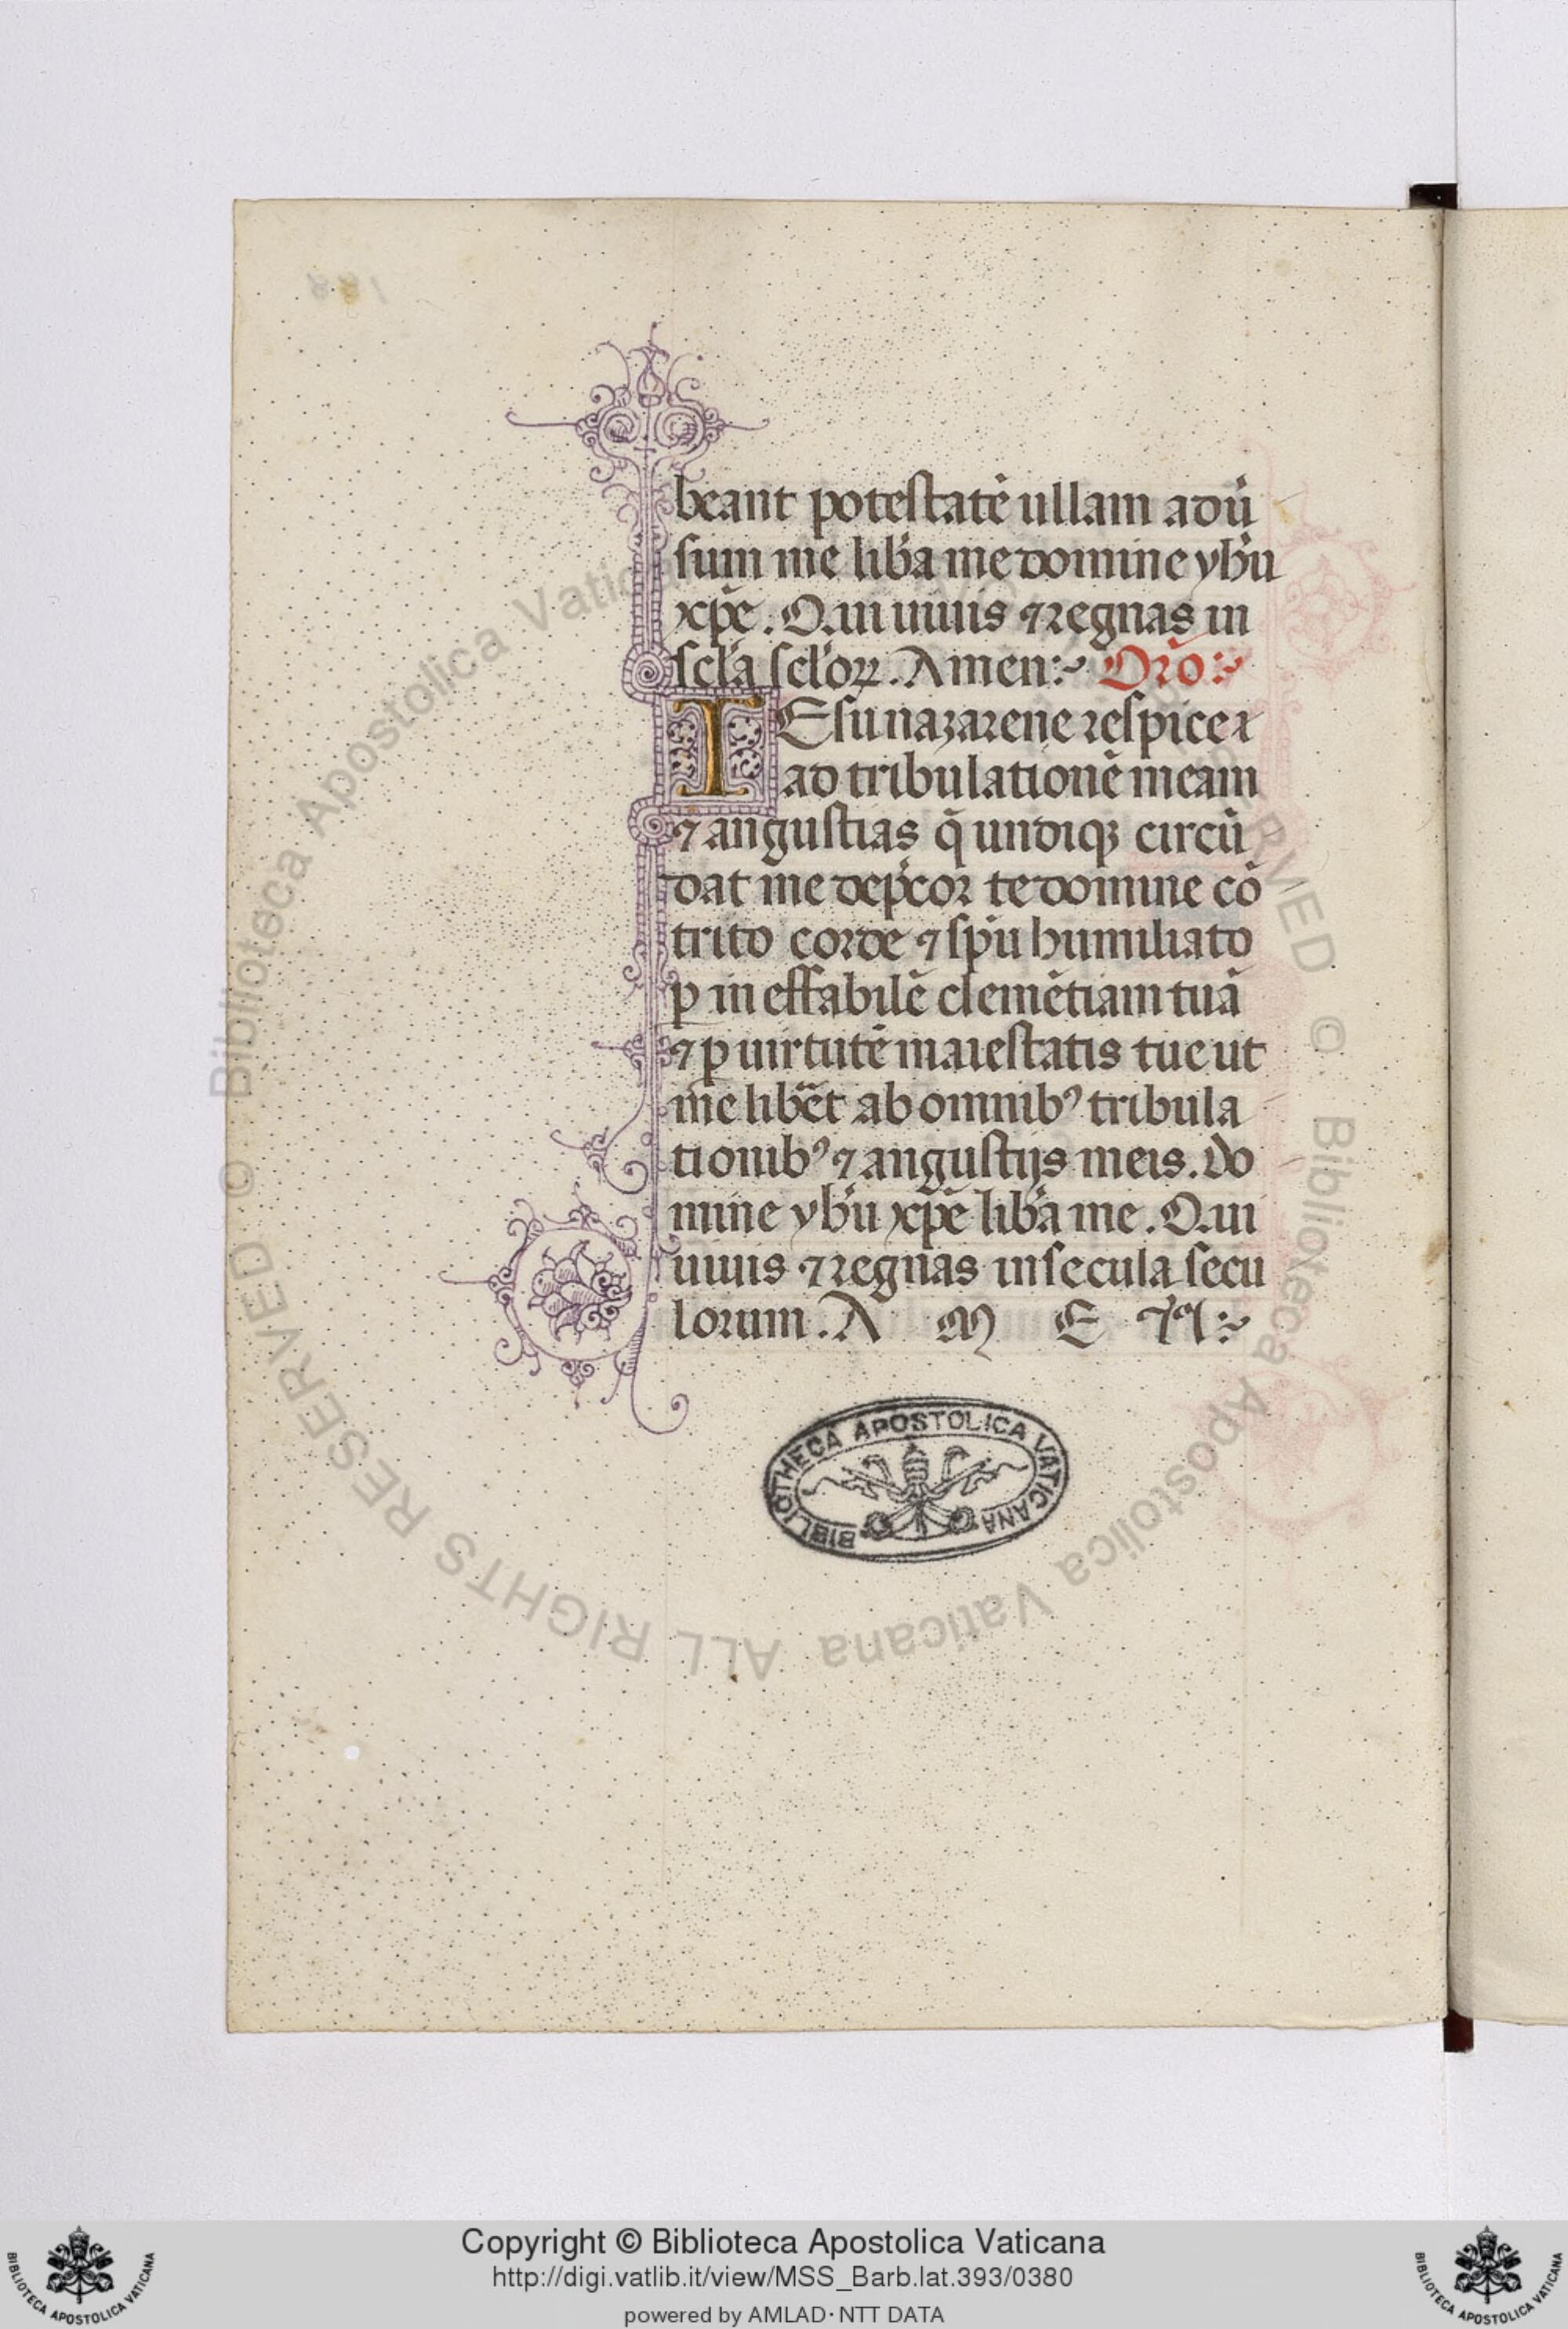 beant potestatē ullam adũ
sum me lib̾a me domine yh̾u
xp̄e. Qui uiuis ⁊ regnas in
scl̾a scl̾oꝝ. Amen:~ Or̄o:~
IEsu nazarene respice
ad tribulationē meam
⁊ angustias q̄ undiqꝫ circū
dat me dep̾cor te domine cō
trito corde ⁊ sp̄u humiliato
ꝑ in effabilē clemētiam tuā
⁊ ꝑ uirtutē maiestatis tue ut
me lib̾et ab omnibꝰ tribula
tionibꝰ ⁊ angustijs meis. Do
mine yh̾u xp̄e lib̾a me. Qui
uiuis ⁊ regnas in secula secu
lorum. A M E N:~
BIBLIOTHECA APOSTOLICA VATICANA
© Biblioteca Apostolica Vaticana ALL RIGHTS RESERVED
Copyright © Biblioteca Apostolica Vaticana
http://digi.vatlib.it/view/MSS_Barb.lat.393/0380
powered by AMLAD·NTT DATA
BIBLIOTECA APOSTOLICA VATICANA
BIBLIOTECA APOSTOLICA VATICANA